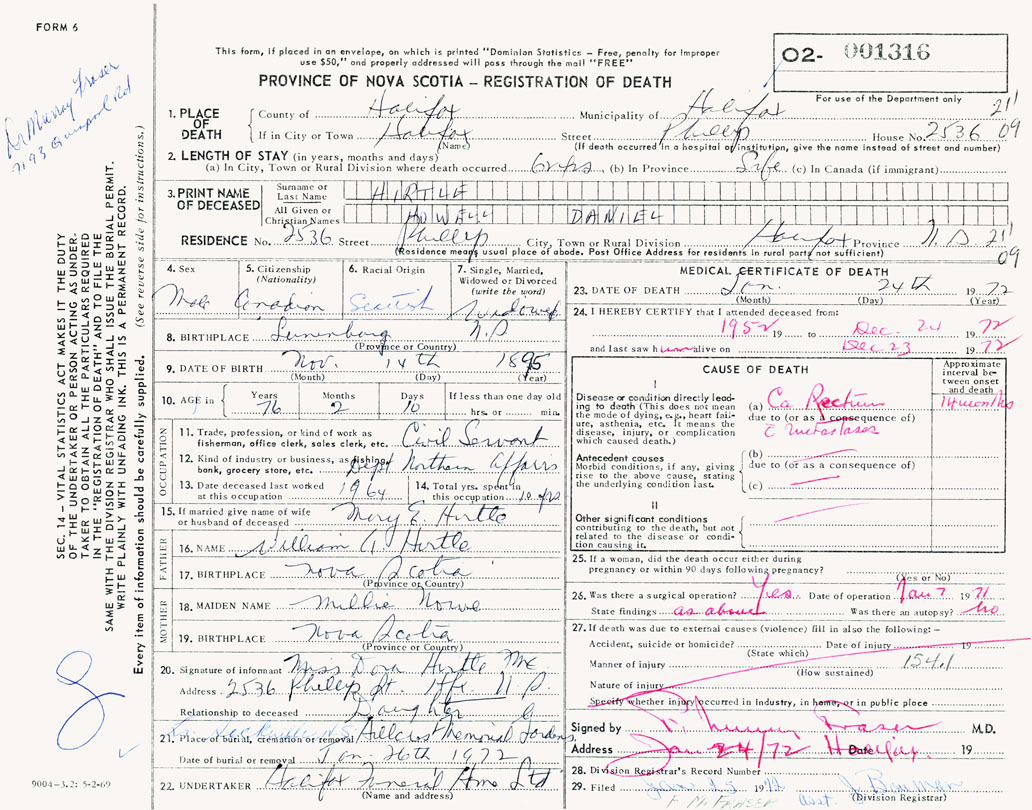 FORM 6
Dr Murray Fraser
7193 Quinpool Rd
O2- 001316
For use of the Department only
This form, if placed in an envelope, on which is printed "Dominian Statistics – Free, penalty for Improper
use $50," and properly addressed will pass through the mail "FREE"
PROVINCE OF NOVA SCOTIA – REGISTRATION OF DEATH
1. PLACE OF DEATH
County of Halifax Municipality of Halifax 21'
If in City or Town Halifax Street Phillip House No. 2536 09
(Name) (If death occurred in a hospital or institution, give the name instead of street and number)
2. LENGTH OF STAY (in years, months and days)
(a) In City, Town or Rural Division where death occurred 60 yrs (b) In Province Life (c) In Canada (if immigrant)
3. PRINT NAME OF DECEASED
Surname or Last Name HIRTLE
All Given or Christian Names HOWELL DANIEL
RESIDENCE No. 2536 Street Phillip City, Town or Rural Division Halifax Province N. S. 21'
(Residence means usual place of abode. Post Office Address for residents in rural parts not sufficient) 09
4. Sex Male
5. Citizenship (Nationality) Canadian
6. Racial Origin Scotish
7. Single, Married, Widowed or Divorced (write the word) Widowed
8. BIRTHPLACE Lunenburg N.S
(Province or Country)
9. DATE OF BIRTH Nov. 14th 1895
(Month) (Day) (Year)
10. AGE in Years 76 Months 2 Days 10 If less than one day old
hrs. or min.
OCCUPATION
11. Trade, profession, or kind of work as fisherman, office clerk, sales clerk, etc. Civil Servant
12. Kind of industry or business, as fishing, bank, grocery store, etc. Dept Northern Affairs
13. Date deceased last worked at this occupation 1964
14. Total yrs. spent in this occupation 10 yrs
15. If married give name of wife or husband of deceased Mary E. Hirtle
FATHER
16. NAME William A. Hirtle
17. BIRTHPLACE Nova Scotia
(Province or Country)
MOTHER
18. MAIDEN NAME Millie Nowe
19. BIRTHPLACE Nova Scotia
(Province or Country)
20. Signature of informant Miss Dora Hirtle
Address 2536 Phillip St. Hfx N S.
Relationship to deceased Daughter
21. Place of burial, cremation or removal Hillcrest Memorial Gardens
Date of burial or removal Jan 26th 1972
22. UNDERTAKER Halifax Funeral Home Ltd
(Name and address)
MEDICAL CERTIFICATE OF DEATH
23. DATE OF DEATH Jan. 24th 1972
(Month) (Day) (Year)
24. I HEREBY CERTIFY that I attended deceased from:
1952 19 to Dec. 24 1972
and last saw him alive on Dec 23 1972
CAUSE OF DEATH
Approximate interval between onset and death
I
Disease or condition directly leading to death (This does not mean the mode of dying, e.g., heart failure, asthenia, etc. It means the disease, injury, or complication which caused death.)
(a) Ca Rectum 14 months
due to (or as a consequence of)
c metastases
Antecedent causes
Morbid conditions, if any, giving rise to the above cause, stating the underlying condition last.
(b)
due to (or as a consequence of)
(c)
II
Other significant conditions
contributing to the death, but not related to the disease or condition causing it.
25. If a woman, did the death occur either during
pregnancy or within 90 days following pregnancy?
(Yes or No)
26. Was there a surgical operation? Yes. Date of operation Jan 7 1971
State findings as above Was there an autopsy? No
27. If death was due to external causes (violence) fill in also the following: –
Accident, suicide or homicide? Date of injury 19
(State which)
Manner of injury 154.1
(How sustained)
Nature of injury
Specify whether injury occurred in industry, in home, or in public place
Signed by T. Murray Fraser M.D.
Address Jan 24/72 Halifax. Date 19
28. Division Registrar's Record Number
29. Filed Jan 25 1972 asst. J. Bowman
(Division Registrar)
SEC. 14 – VITAL STATISTICS ACT MAKES IT THE DUTY
OF THE UNDERTAKER OR PERSON ACTING AS UNDER-
TAKER TO OBTAIN ALL THE PARTICULARS REQUIRED
IN THE "REGISTRATION OF DEATH" AND TO FILE THE
SAME WITH THE DIVISION REGISTRAR WHO SHALL ISSUE THE BURIAL PERMIT.
WRITE PLAINLY WITH UNFADING INK. THIS IS A PERMANENT RECORD.
Every item of information should be carefully supplied. (See reverse side for instructions.)
9004–3.2: 5-2-69